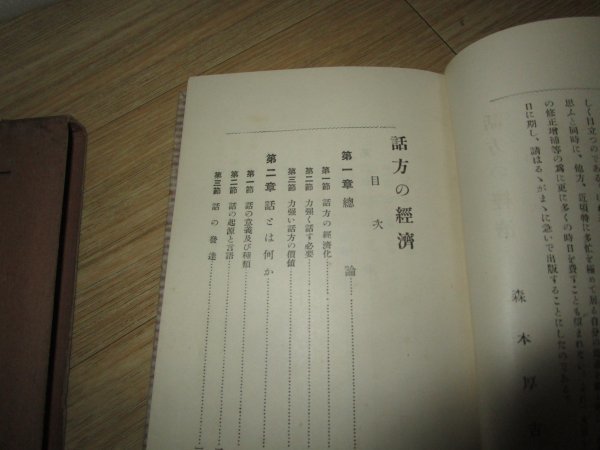 しく目立つのである。
思ふと同時に、他方、近頃特に多忙を極めて居る自分
の修正增補等の爲に更に多くの時日を費すことも
日に期し、請はるゝがまゝに急いで出版することにしたのである。
森本厚吉
話方の經濟
目次
第一章 總論
第一節 話方の經濟化
第二節 力强く話す必要
第三節 力强い話方の價値
第二章 話とは何か
第一節 話の意義及び種類
第二節 話の起源と言語
第三節 話の發達